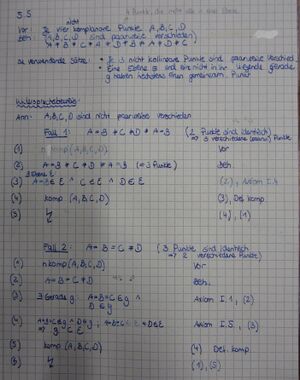 5.5
nicht
Vor: Je vier komplanare Punkte A,B,C,D
Beh: A,B,C,D sind paarweise verschieden
A ≠ B ≠ C ≠ A ≠ D ≠ B ≠ A ≠ D ≠ C
Zu verwendende Sätze: • Je 3 nicht kollineare Punkte sind paarweise verschied.
• Eine Ebene E und eine nicht in ihr liegende Gerade
g haben höchstens einen gemeinsam. Punkt
Widerspruchsbeweis:
Ann: A,B,C,D sind nicht paarweise verschieden
Fall 1: A = B ≠ C ≠ D ≠ A = B (2 Punkte sind identisch
⇒ 3 verschiedene Punkte)
(1) n komp (A,B,C,D) Vor
(2) A = B ≠ C ≠ D ≠ A = B (= 3 Punkte) Beh.
∃ Ebene E
(3) A=B ∈ E ∧ C ∈ E ∧ D ∈ E (2), Axiom I.4
(4) komp (A,B,C,D) (3), Def. komp
(5) ↯ (4), (1)
Fall 2: A = B = C ≠ D (3 Punkte sind identisch
⇒ 2 verschiedene Punkte)
(1) n komp (A,B,C,D) Vor
(2) A = B = C ≠ D Beh.
(3) ∃ Gerade g: A=B=C ∈ g ∧ Axiom I.1, (2)
D ∈ g
(4) A=B=C ∈ g ∧ D ∈ g, A=B=C ∈ E ∧ D ∈ E Axiom I.5, (3)
⇒ g ⊂ E
(5) komp (A,B,C,D) (4) Def. komp
(6) ↯ (1), (5)